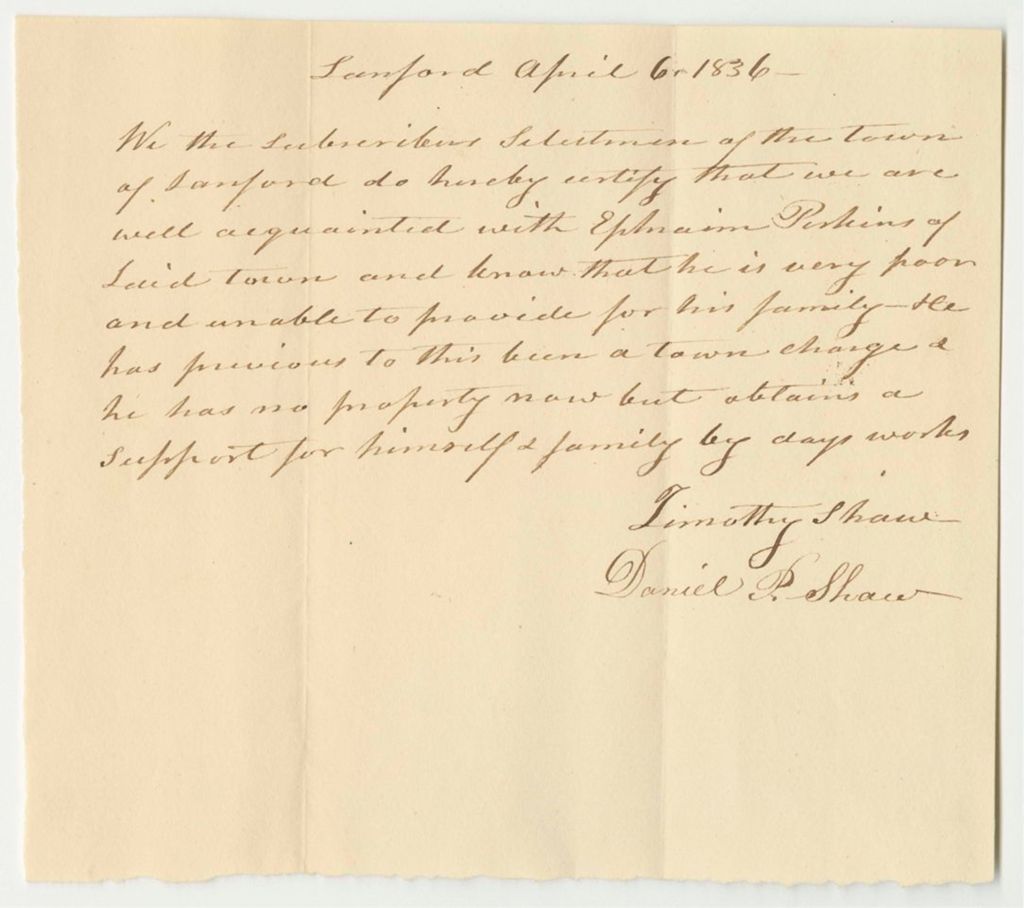 Sanford April 6. 1836 —
We the subscribers Selectmen of the town
of Sanford do hereby certify that we are
well acquainted with Ephraim Perkins of
said town and know that he is very poor
and unable to provide for his family — He
has previous to this been a town charge &
he has no property now but obtains a
support for himself & family by days works
Timothy Shaw
Daniel P. Shaw